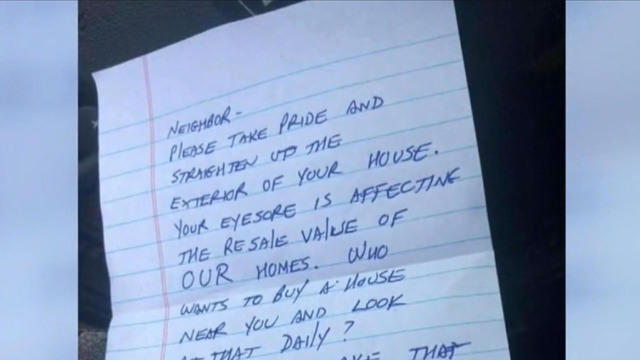 NEIGHBOR-
PLEASE TAKE PRIDE AND
STRAIGHTEN UP THE
EXTERIOR OF YOUR HOUSE.
YOUR EYESORE IS AFFECTING
THE RESALE VALUE OF
OUR HOMES. WHO
WANTS TO BUY A HOUSE
NEAR YOU AND LOOK
AT THAT DAILY?
THAT